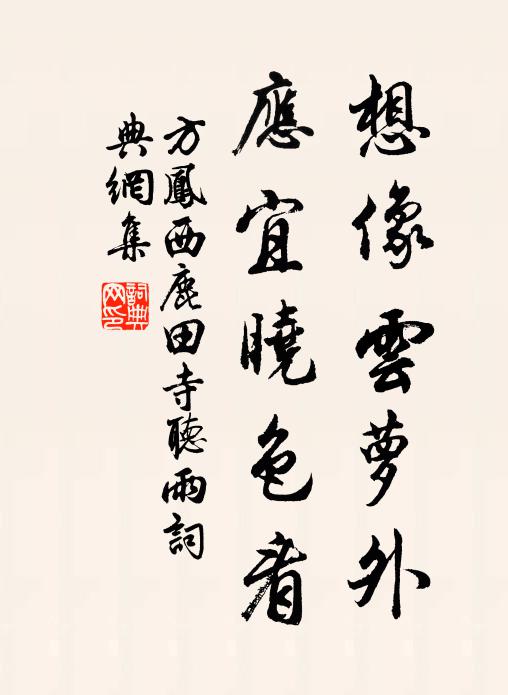 想像雲夢外
應宜曉色看
方鳳西鹿田寺聽雨詞
典網集
詞典
网印